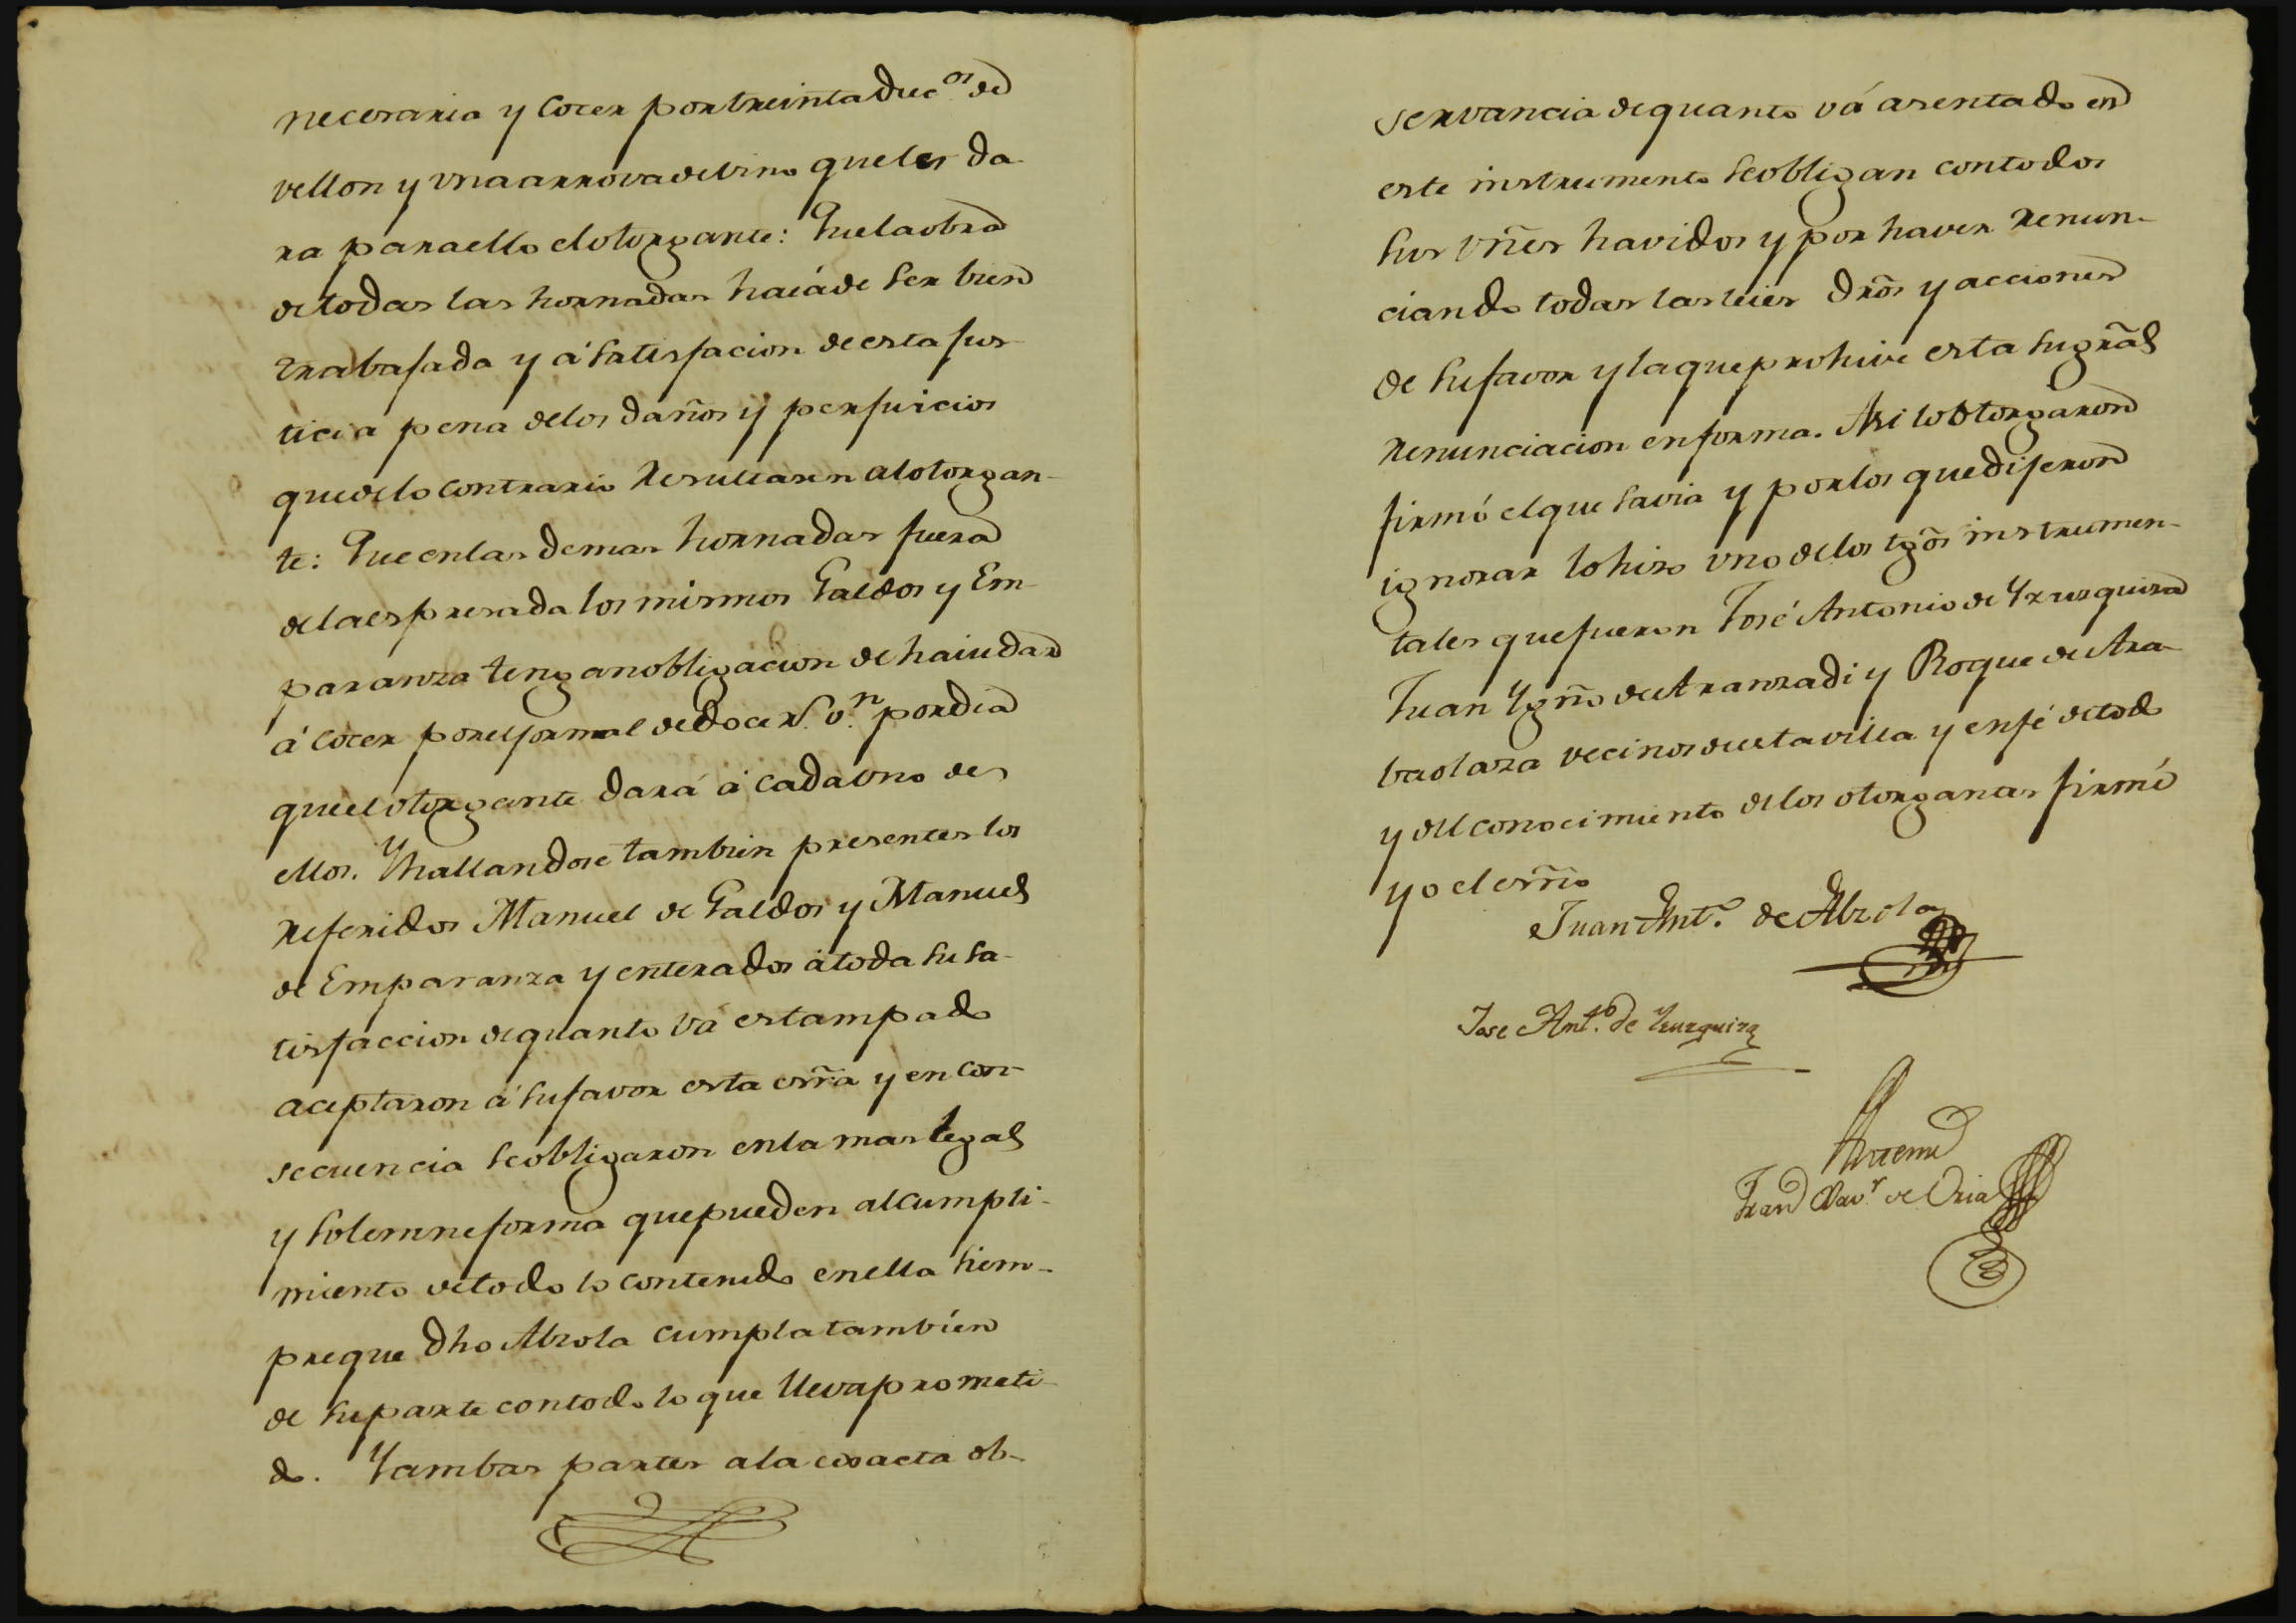 necesaria y Cocer por treinta duc.os de
vellon y vna arrova de vino que les da
ra para ello el otorgante: Que la obra
de todas las hornadas haiá de ser bien
trabajada y á satisfacion de esta jus
ticia pena de los daños y perjuicios
que de lo contrario resultasen al otorgan-
te: Que en las demas hornadas fuera
de la espresada los mismos Galdos y Em-
paranza tengan obligacion de haiudar
á Cocer por el jornal de doce rs. v.n por dia
que el otorgante dará á cada vno de
ellos. Y hallandose tambien presentes los
referidos Manuel de Galdos y Manuel
de Emparanza y enterados á toda su sa-
tisfaccion de quanto vá estampado
aceptaron á su favor esta esrĩa y en con-
secuencia se obligaron en la mas legal
y solemne forma que pueden al cumpli-
miento de todo lo contenido en ella siem-
pre que dho Alzola cumpla tambien
de su parte con todo lo que lleva prometi-
do. Y ambas partes a la exacta ob-
servancia de quanto vá asentado en
este instrumento se obligan con todos
sus vñes havidos y por haver renun-
ciando todas las leies drõs y acciones
de su favor y la que prohive esta su grãl
renunciacion en forma. Asi lo otorgaron
firmó el que savia y por los que dijeron
ignorar lo hizo vno de los tgõs instrumen-
tales que fueron José Antonio de Yzurquiza
Juan Ygñ̃o de Aranzadi y Roque de Ara-
baolaza vecinos de esta villa y en fé de todo
y del conocimiento de los otorgantes firmé
yo el esrño
Juan Ant.o de Alzola
Jose Ant.o de Yzurquiza
Ante mi
Fran Xav.r de Oria